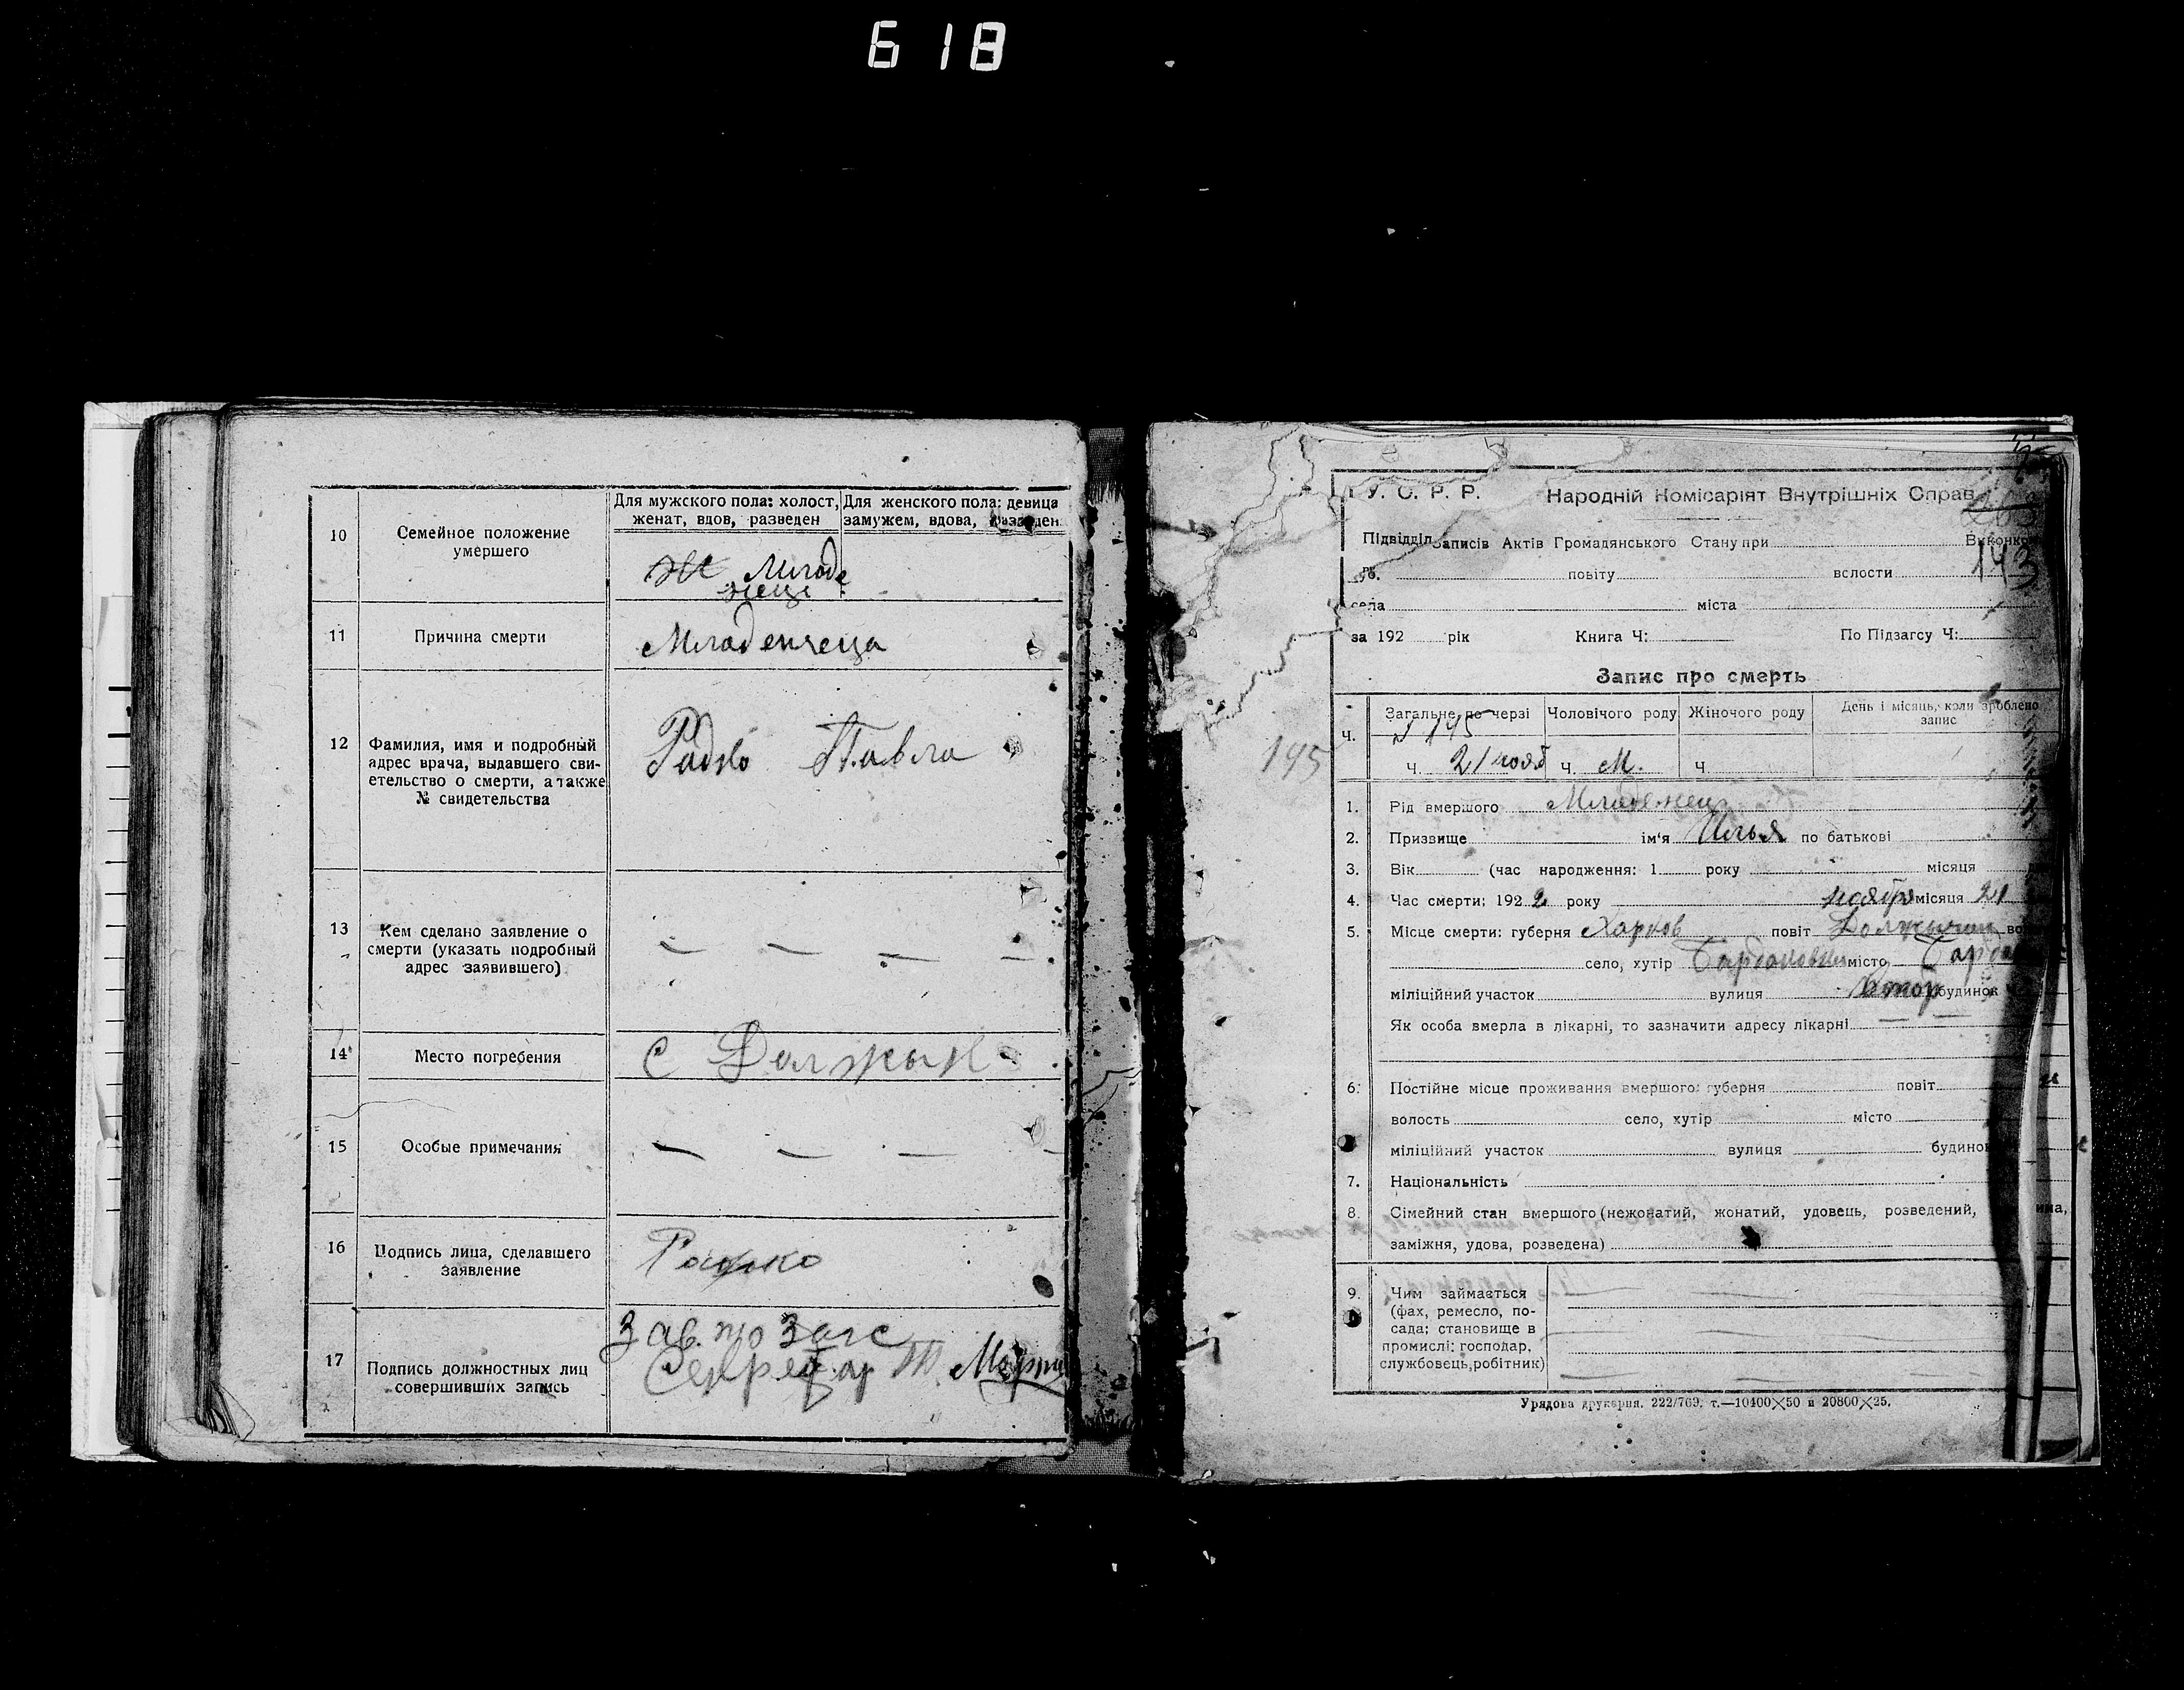 618
10
Семейное положение
умершего
Для мужского пола: холост,
женат, вдов, разведен
Для женского пола: девица
замужем, вдова, разведен.
Младе
нец
11
Причина смерти
Младенчеца
12
Фамилия, имя и подробный
адрес врача, выдавшего сви-
етельство о смерти, а также
№ свидетельства
Радко Павла
13
Кем сделано заявление о
смерти (указать подробный
адрес заявившего)
— — — —
14
Место погребения
С Должык
15
Особые примечания
— — — —
16
Подпись лица, сделавшего
заявление
Радько
17
Подпись должностных лиц
совершивших запись
Зав. по Загс
Секретар
У. С. Р. Р. Народній Комісаріят Внутрішніх Справ
Підвідділ Записів Актів Громадянського Стану при Виконко
143
уб. повіту волости
села міста
за 192 рік Книга Ч: По Підзагсу Ч:
Запис про смерть
195
Ч.
Загальне по черзі
Чоловічого роду
Жіночого роду
День і місяць, коли зроблено
запис
195
Ч. 21 нояб Ч. М. Ч
1. Рід вмершого Младенец
2. Призвище ім'я Илья по батькові
3. Вік (час народження: 1 року місяця
4. Час смерти: 1922 року ноября місяця 21
5. Місце смерти: губерня Харков повіт во
село, хутір місто
міліційний участок вулиця будинок
Як особа вмерла в лікарні, то зазначити адресу лікарні — —
6. Постійне місце проживання вмершого: губерня повіт
волость село, хутір місто
міліційний участок вулиця будинок
7. Національність
8. Сімейний стан вмершого (нежонатий, жонатий, удовець, розведений,
заміжня, удова, розведена)
9. Чим займається
(фах, ремесло, по-
сада; становище в
промислі: господар,
службовець, робітник)
Урядова друкарня. 222/769. т.—10400×50 и 20800×25.